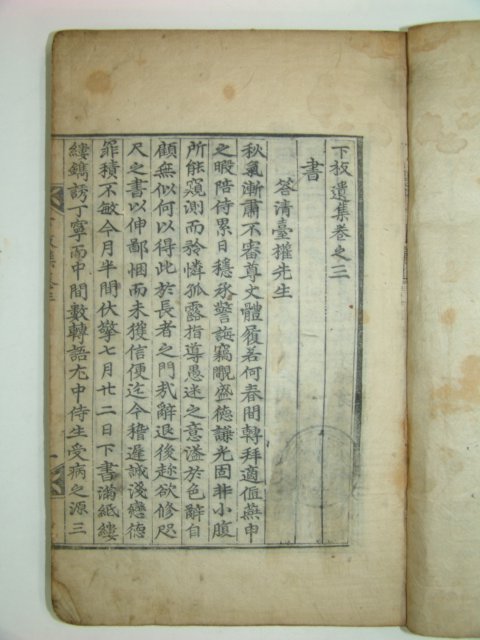 下枝遺集卷之三
書
答清臺權先生
秋氣漸肅不審尊丈體履若何春間轉拜適値燕申
之暇陪侍累日穩承警誨竊覸盛德謙光固非小腹
所能窺測而矜憐孤露指導愚迷之意溢於色辭自
顧無似何以得此於長者之門哉辭退後趍欲修咫
尺之書以伸鄙悃而未獲信便迄今稽遲誠淺戀德
罪積不敏今月半間伏擎七月廿二日下書滿紙縷
縷鐫誘丁寧而中間數轉語尤中侍生受病之源三